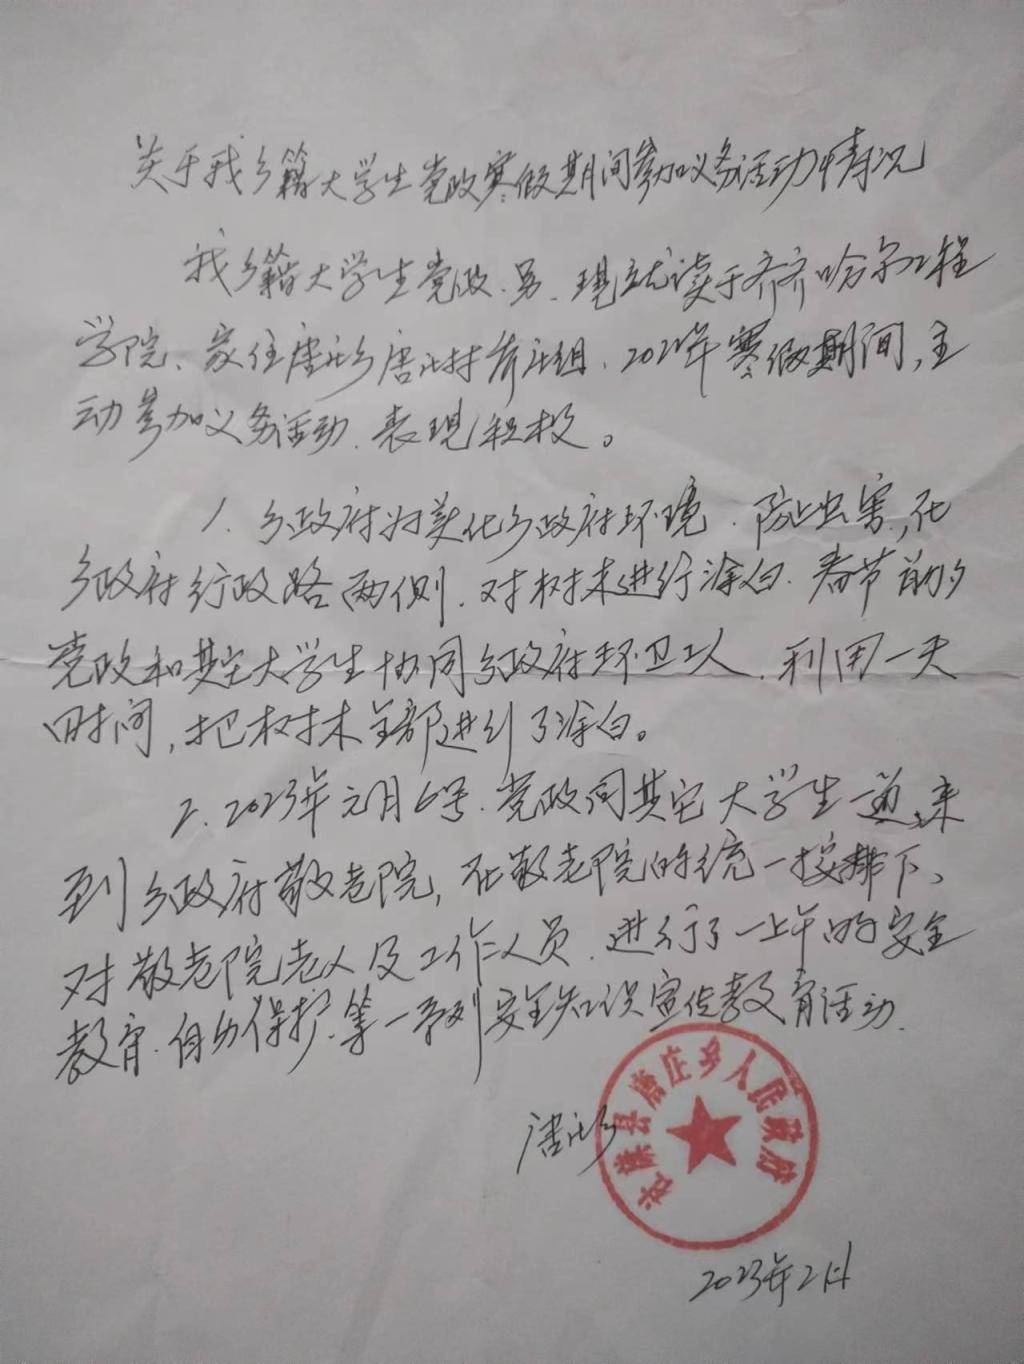 关于我乡籍大学生党政寒假期间参加义务活动情况
我乡籍大学生党政、男、现就读于齐齐哈尔工程
学院、家住唐庄乡唐庄村 组、2022年寒假期间，主
动参加义务活动、表现积极。
1、乡政府为美化乡政府环境、防止虫害，在
乡政府行政路两侧、对树木进行涂白、春节前夕
党政和其它大学生协同乡政府环卫工人、利用一天
时间，把树木全部进行了涂白。
2、2023年元月6号、党政同其它大学生一道、来
到乡政府敬老院，在敬老院的统一按排下、
对敬老院老人及工作人员、进行了一上午的安全
教育、自我保护、等一系列安全知识宣传教育活动.
唐庄乡
县唐庄乡人民政府
2023年2月